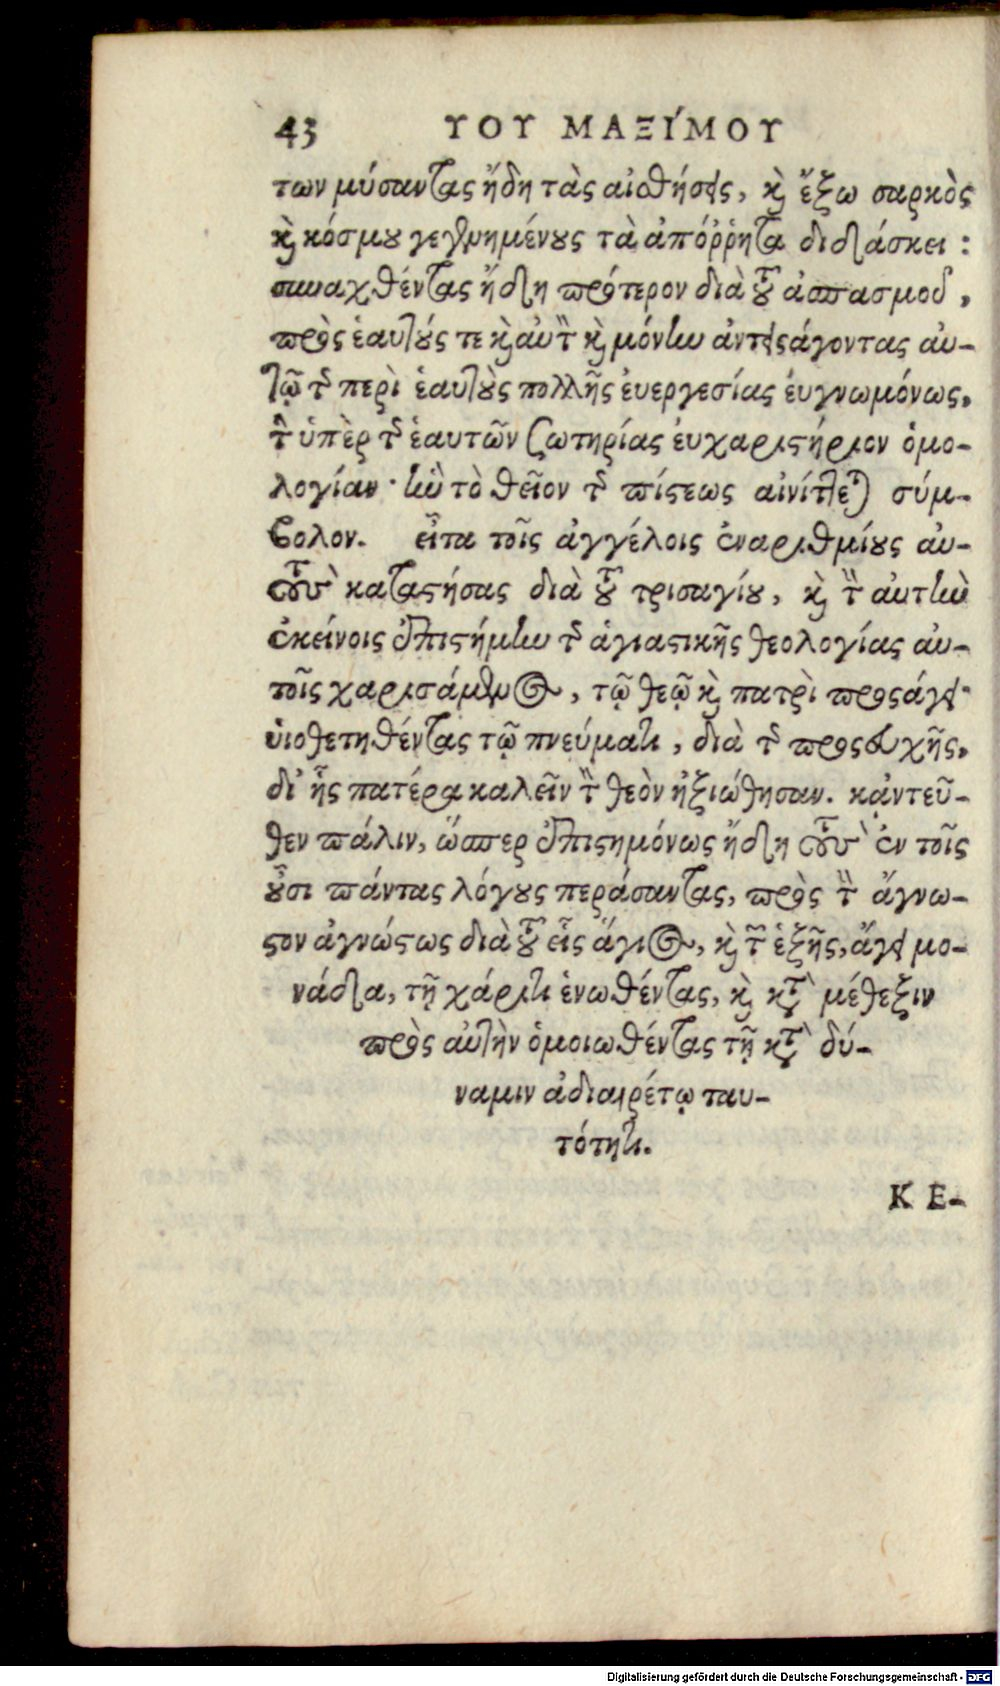 43 ΤΟΥ ΜΑΞΊΜΟΥ
των μύσαντας ἤδη τὰς αἰσθήσεις, καὶ ἔξω σαρκὸς
καὶ κόσμου γεγενημένους τὰ ἀπόῤῥητα διδάσκει:
συναχθέντας ἤδη πρότερον διὰ τοῦ ἀσπασμοῦ,
πρὸς ἑαυτούς τε καὶ αὐτὸν καὶ μόνην ἀντεισάγοντας αὐ-
τῷ τῆς περὶ ἑαυτοὺς πολλῆς ἐυεργεσίας ἐυγνωμόνως,
τὴν ὑπὲρ τῆς ἑαυτῶν ζωτηρίας ἐυχαριστήριον ὁμο-
λογίαν· ἣν τὸ θεῖον τῆς πίστεως αἰνίττεται σύμ-
βολον. εἶτα τοῖς ἀγγέλοις ἐναριθμίους αὐ-
τοὺς καταστήσας διὰ τοῦ τρισαγίου, καὶ τὴν αὐτὴν
ἐκείνοις ἐπιστήμην τῆς ἁγιαστικῆς θεολογίας αὐ-
τοῖς χαρισάμενος, τῷ θεῷ καὶ πατρὶ προσάγει·
ὑιοθετηθέντας τῷ πνεύματι, διὰ τῆς προσευχῆς,
δι' ἧς πατέρα καλεῖν τὸν θεὸν ἠξιώθησαν. κᾀντεῦ-
θεν πάλιν, ὥσπερ ἐπιστημόνως ἤδη τοὺς ἐν τοῖς
οὖσι πάντας λόγους περάσαντας, πρὸς τὸν ἄγνω-
στον ἀγνώστως διὰ τοῦ εἷς ἅγιος, καὶ τῶν ἑξῆς, ἄγει μο-
νάδα, τῇ χάριτι ἑνωθέντας, καὶ κατὰ μέθεξιν
πρὸς αὐτὴν ὁμοιωθέντας τῇ κατὰ δύ-
ναμιν ἀδιαιρέτῳ ταυ-
τότητι.
ΚΕ-
Digitalisierung gefördert durch die Deutsche Forschungsgemeinschaft - DFG